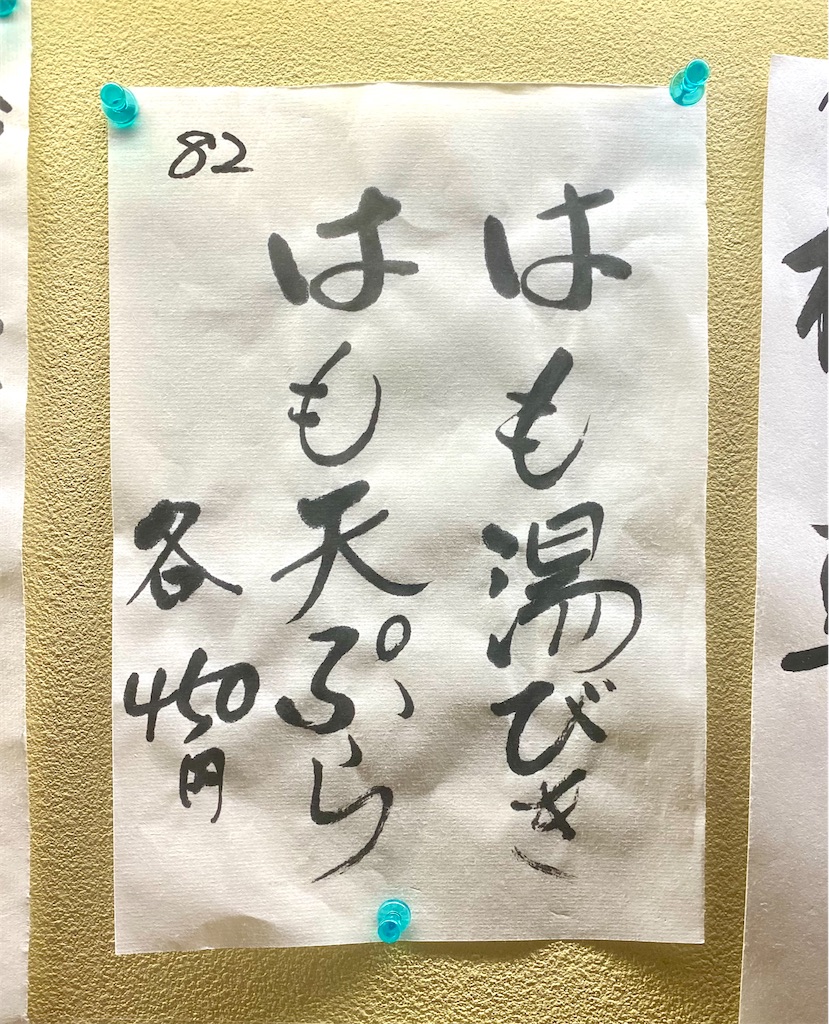 82
はも湯びき
はも天ぷら
各450円